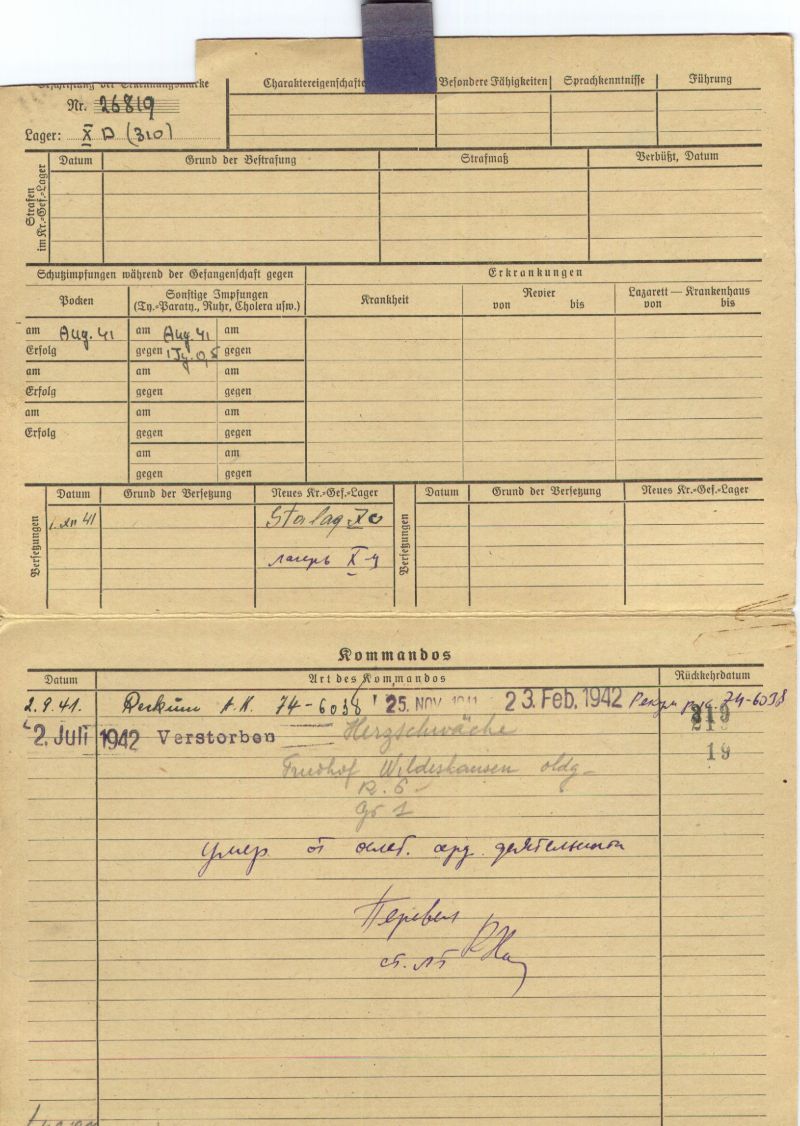 Beschriftung der Erkennungsmarke Charaktereigenschaften Besondere Fähigkeiten Sprachkenntnisse Führung
Nr. 26819
Lager: X D (310)
Strafen im Kr.-Gef.-Lager
Datum Grund der Bestrafung Strafmaß Verbüßt, Datum
Schutzimpfungen während der Gefangenschaft gegen Erkrankungen
Pocken Sonstige Impfungen (Ty.-Paraty., Ruhr, Cholera usw.) Krankheit Revier von bis Lazarett — Krankenhaus von bis
am Aug. 41 am Aug. 41 am
Erfolg gegen Ty. 0,5 gegen
am am am
Erfolg gegen gegen
am am am
Erfolg gegen gegen
am am
gegen gegen
Versetzungen
Datum Grund der Versetzung Neues Kr.-Gef.-Lager
1. XII 41 Stalag X C
лагерь X-ц
Versetzungen
Datum Grund der Versetzung Neues Kr.-Gef.-Lager
Kommandos
Datum Art des Kommandos Rückkehrdatum
2.9.41. A.K. 74-6038 25. NOV. 1941 23. Feb. 1942 74-6038
2. Juli 1942 Verstorben Herzschwäche 219
19
Friedhof Wildeshausen oldg
R. 6
Gr 1
умер от слаб. серд. деятельности
Перевел
ст. лт